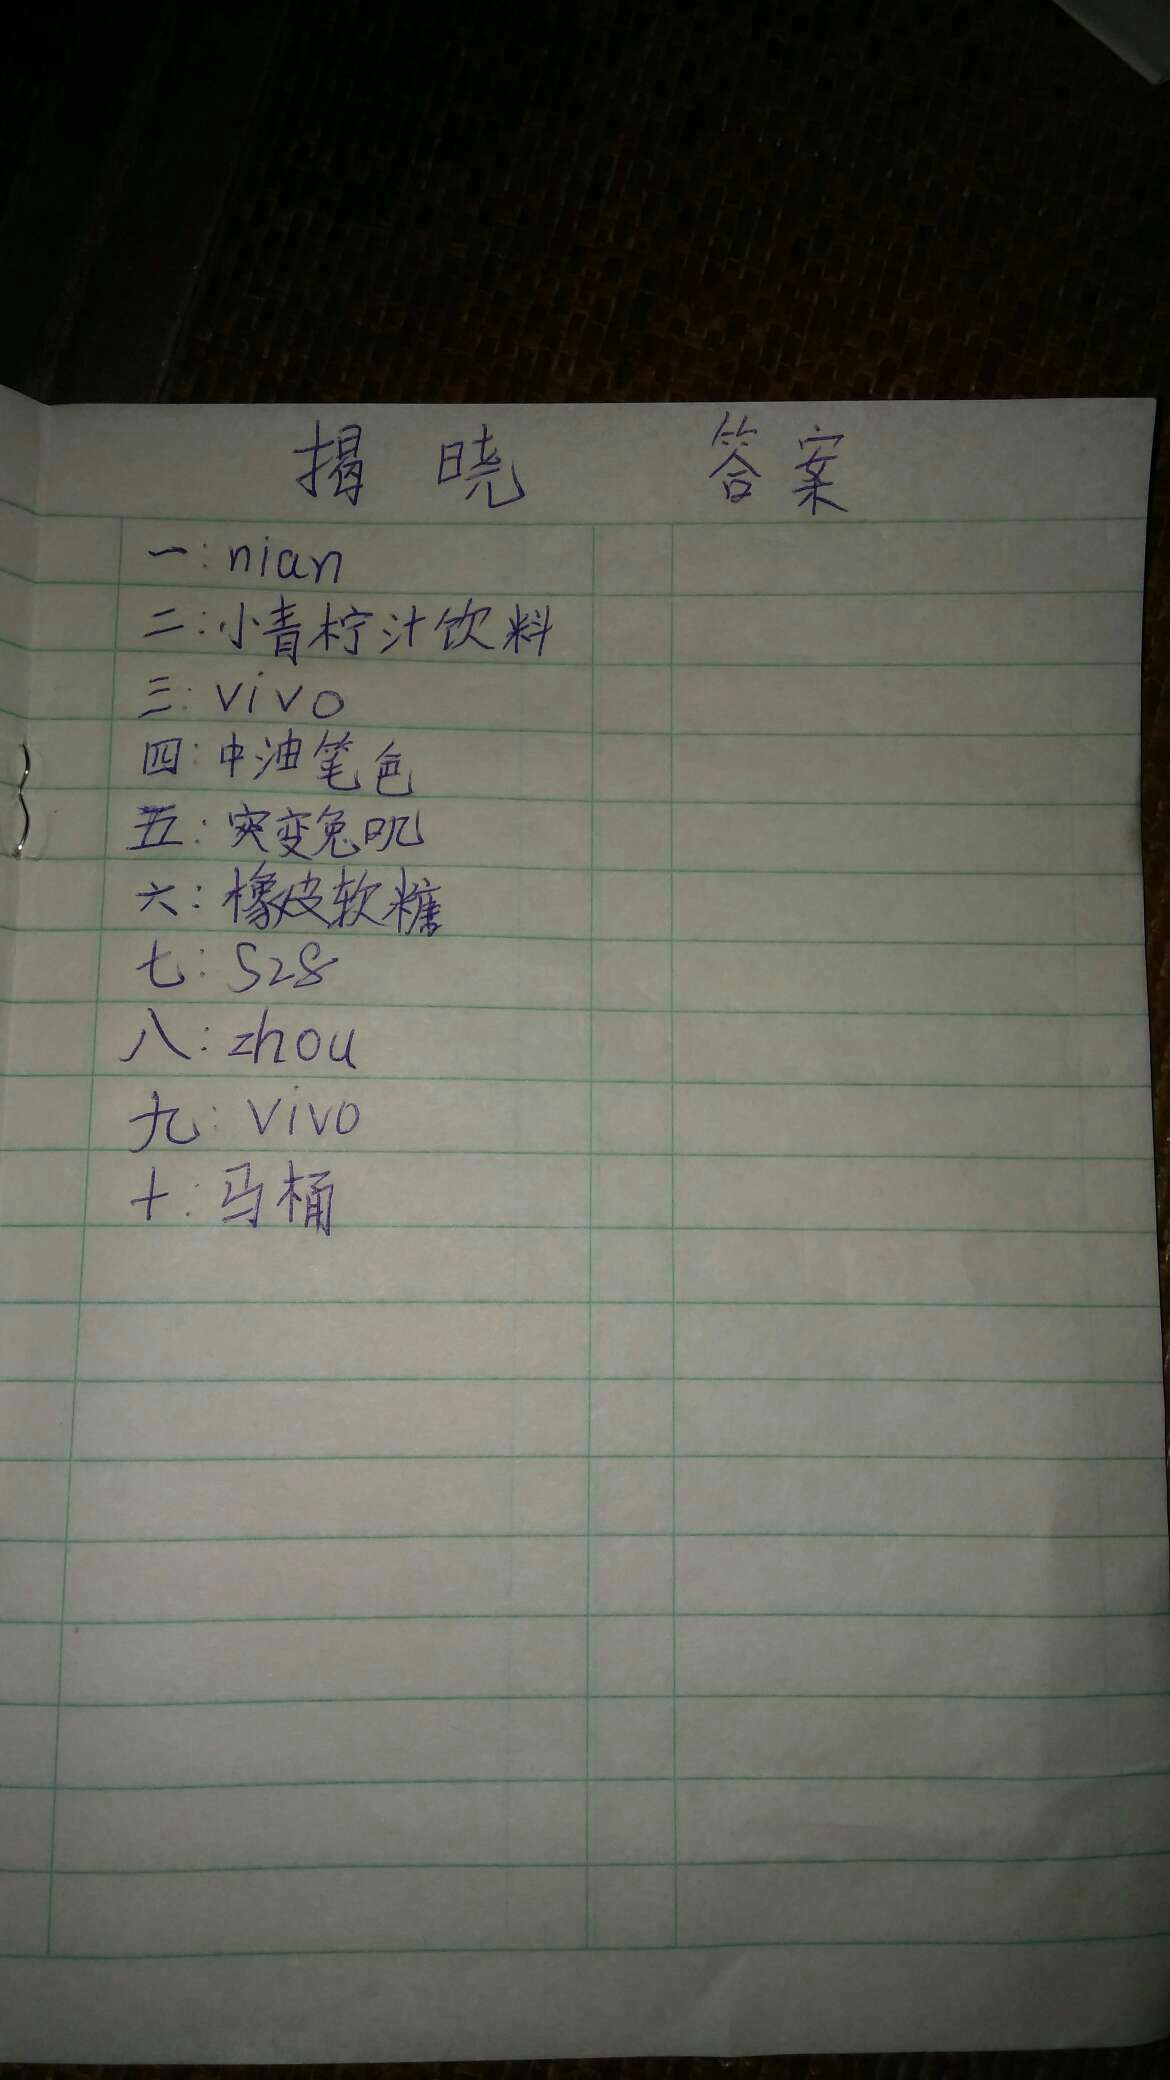 揭晓 答案
一:nian
二:小青柠汁饮料
三:vivo
四:中油笔色
五:突变兔叽
六:橡皮软糖
七:528
八:zhou
九:vivo
十:马桶